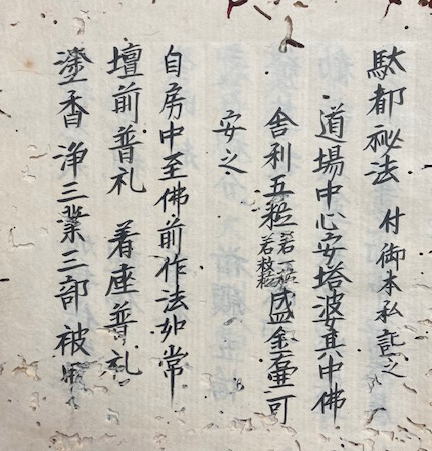 馱都祕法 付御本私記之
道場中心安塔婆其中佛
舍利五粒若一粒若数粒盛金壷可
安之
自房中至佛前作法如常
壇前普礼 着座普礼
塗香 浄三業三部 被